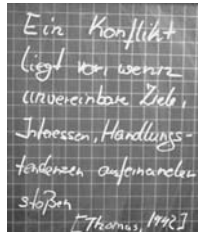 Ein Konflikt
liegt vor, wenn
unvereinbare Ziele,
Interessen, Handlungs-
tendenzen aufeinander
stoßen
[Thomas, 1992]